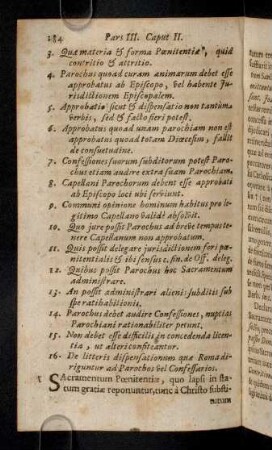 184 Pars III. Caput II.
3. Quæ materia & forma Pœnitentiæ, quid
contritio & attritio.
4. Parochus quoad curam animarum debet esse
approbatus ab Episcopo, vel habente Ju-
risdictionem Episcopalem.
5. Approbatio sicut & dispensatio non tantùm
verbis, sed & facto fieri potest.
6. Approbatus quoad unam parochiam non est
approbatus quoad totam Diœcesim, fallit
de consuetudine.
7. Confessiones suorum subditorum potest Paro-
chus etiam audire extra suam Parochiam.
8. Capellani Parochorum debent esse approbati
ab Episcopo loci ubi serviunt.
9. Communi opinione hominum habitus pro le-
gitimo Capellano validè absolvit.
10. Quo jure possit Parochus ad breve tempus te-
nere Capellanum non approbatum.
11. Quis possit delegare jurisdictionem fori pœ-
nitentialis & ibi sensus c. fin. de Off. deleg.
12. Quibus possit Parochus hoc Sacramentum
administrare.
13. An possit administrari alieni subditis sub
spe ratihabitionis.
14. Parochus debet audire Confessiones, nuptias
Parochiani rationabiliter petunt.
15. Non debet esse difficilis in concedenda licen-
tia, ut alteri confiteantur.
16. De litteris dispensationum quæ Roma di-
riguntur ad Parochos vel Confessarios.
1 Sacramentum Pœnitentiæ, quo lapsi in sta-
tum gratiæ reponuntur, tunc à Christo